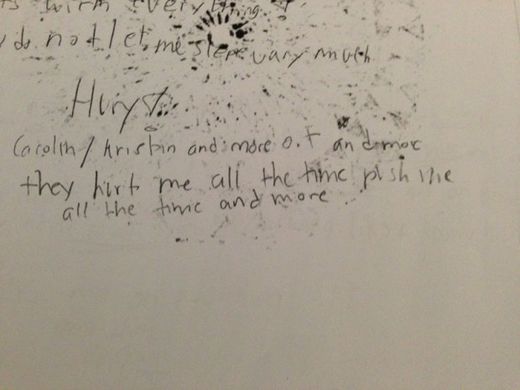 with every thing
do not let me vary much
Hurys
Carolin / kristin and more o.t and mor
they hirt me all the time pish me
all the time and more